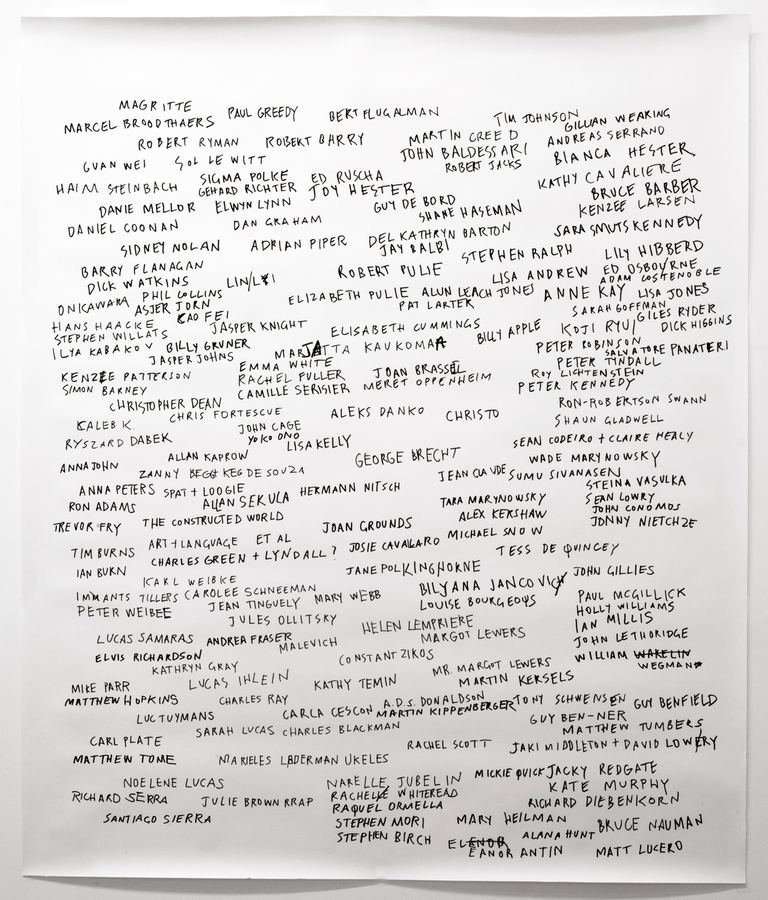 MAGRITTE
MARCEL BROODTHAERS PAUL GREEDY BERT FLUGALMAN TIM JOHNSON GILLIAN WEAKING
ROBERT RYMAN ROBERT BARRY MARTIN CREED ANDREAS SERRANO
GUAN WEI SOL LE WITT JOHN BALDESSARI BIANCA HESTER
HAIM STEINBACH SIGMA POLKE ED RUSCHA ROBERT JACKS KATHY CAVALIERE
GEHARD RICHTER JOY HESTER BRUCE BARBER
DANIE MELLOR ELWYN LYNN GUY DE BORD KENZEE LARSEN
DANIEL COONAN DAN GRAHAM SHANE HASEMAN SARA SMUTS KENNEDY
SIDNEY NOLAN ADRIAN PIPER DEL KATHRYN BARTON
JAY BALBI STEPHEN RALPH LILY HIBBERD
BARRY FLANAGAN ROBERT PULIE LISA ANDREW ED OSBOURNE
DICK WATKINS LIN/LYI ADAM COSTENOBLE
ONIKAWARA PHIL COLLINS ELIZABETH PULIE ALUN LEACH JONES ANNE KAY LISA JONES
ASJER JORN PAT LARTER SARAH GOFFMAN
HANS HAACKE CAO FEI GILES RYDER
STEPHEN WILLATS JASPER KNIGHT ELISABETH CUMMINGS BILLY APPLE KOJI RYUI DICK HIGGINS
ILYA KABAKOV BILLY GRUNER MARJATTA KAUKOMAA PETER ROBINSON SALVATORE PANATERI
JASPER JOHNS EMMA WHITE PETER TINDALL
KENZEE PATTERSON RACHEL FULLER JOAN BRASSIL ROY LICHTENSTEIN
SIMON BARNEY CAMILLE SERISIER MERET OPPENHEIM PETER KENNEDY
CHRISTOPHER DEAN RON-ROBERTSON SWANN
CALEB K. CHRIS FORTESCUE ALEKS DANKO CHRISTO SHAUN GLADWELL
RYSZARD DABEK JOHN CAGE
YOKO ONO LISA KELLY SEAN CODEIRO + CLAIRE HEALY
ANNA JOHN ALLAN KAPROW GEORGE BRECHT WADE MARYNOWSKY
ZANNY BEGG KEG DE SOUZA JEAN CLAUDE SUMU SIVANASEN
ANNA PETERS SPAT + LOOGIE HERMANN NITSCH STEINA VASULKA
RON ADAMS ALLAN SEKULA TARA MARYNOWSKY SEAN LOWRY
TREVOR FRY THE CONSTRUCTED WORLD JOAN GROUNDS ALEX KERSHAW JOHN CONOMOS
ART + LANGUAGE ET AL MICHAEL SNOW JONNY NIETCHZE
TIM BURNS CHARLES GREEN + LYNDALL? JOSIE CAVALLARO TESS DE QUINCEY
IAN BURN KARL WEIBKE JANE POLKINGHORNE JOHN GILLIES
IMMANTS TILLERS CAROLEE SCHNEEMAN BILYANA JANCOVICH
PETER WEIBEE JEAN TINGUELY MARY WEBB LOUISE BOURGEOUS PAUL MCGILLICK
JULES OLLITSKY HOLLY WILLIAMS
HELEN LEMPRIERE IAN MILLIS
LUCAS SAMARAS ANDREA FRASER MALEVICH MARGOT LEWERS JOHN LETHORIDGE
ELVIS RICHARDSON CONSTANT ZIKOS WILLIAM WAKELIN
KATHRYN GRAY MR. MARGOT LEWERS WEGMAN
MIKE PARR LUCAS IHLEIN KATHY TEMIN MARTIN KERSELS
MATTHEW HOPKING CHARLES RAY A.D.S. DONALDSON TONY SCHWENSEN GUY BENFIELD
LUC TUYMANS CARLA CESCON MARTIN KIPPENBERGER GUY BEN-NER
SARAH LUCAS CHARLES BLACKMAN MATTHEW TUMBERS
CARL PLATE RACHEL SCOTT JAKI MIDDLETON + DAVID LOWERY
MATTHEW TOME MARIELES LADERMAN UKELES
NOELENE LUCAS NARELLE JUBELIN MICKIE QUICK JACKY REDGATE
RICHARD SERRA JULIE BROWN RRAP RACHELLE WHITEREAD KATE MURPHY
RAQUEL ORMELLA RICHARD DIEBENKORN
SANTIAGO SIERRA STEPHEN MORI MARY HEILMAN BRUCE NAUMAN
STEPHEN BIRCH ELENOR ALANA HUNT
EANOR ANTIN MATT LUCERO